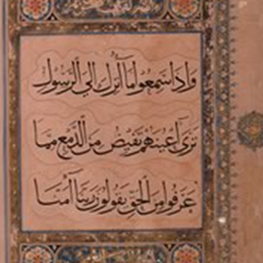 واذا سمعوا ما انزل الى الرسول
ترى اعينهم تفيض من الدمع مما
عرفوا من الحق يقولون ربنا آمنا